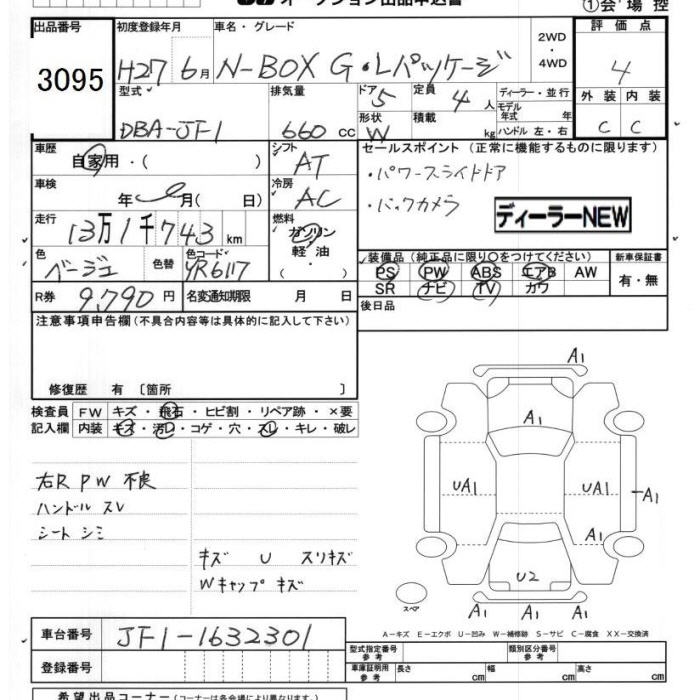 オークション出品申込書
①会場控
出品番号
3095
初度登録年月
H27 6月
車名・グレード
N-BOX G・Lパッケージ
2WD
・
4WD
評価点
4
型式
DBA-JF1
排気量
660 cc
ドア 5
定員 4 人
ディーラー・並行
モデル年式 年
形状 W
積載 kg
ハンドル 左・右
外装 内装
C C
車歴
自家用・( )
シフト
AT
セールスポイント (正常に機能するものに限ります)
・パワースライドドア
・バックカメラ
ディーラーNEW
車検
年 月( 日)
冷房
AC
走行
13万1千743 km
燃料
ガソリン
軽油
・( )
色
ベージュ
色替
色コード
YR611P
装備品 (純正品に限り○をつけてください)
PS PW ABS エアB AW
SR ナビ TV カワ
新車保証書
有・無
R券 9,790 円
名変通知期限 月 日
後日品
注意事項申告欄 (不具合内容等は具体的に記入して下さい)
修復歴 有 [箇所 ]
検査員記入欄
FW キズ・飛石・ヒビ割・リペア跡・×要
内装 キズ・汚レ・コゲ・穴・スレ・キレ・破レ
右R PW 不良
ハンドル スレ
シート シミ
キズ U スリキズ
Wキャップ キズ
A1
A1
UA1 UA1 A1
A1
U2
スペア
A1 A1 A1
A-キズ E-エクボ U-凹み W-補修跡 S-サビ C-腐食 XX-交換済
車台番号 JF1-1632301
登録番号
型式指定番号 参考
類別区分番号 参考
車庫証明用 参考 長さ cm 幅 cm 高さ cm
希望出品コーナー (コーナーは各会場により異なります。)